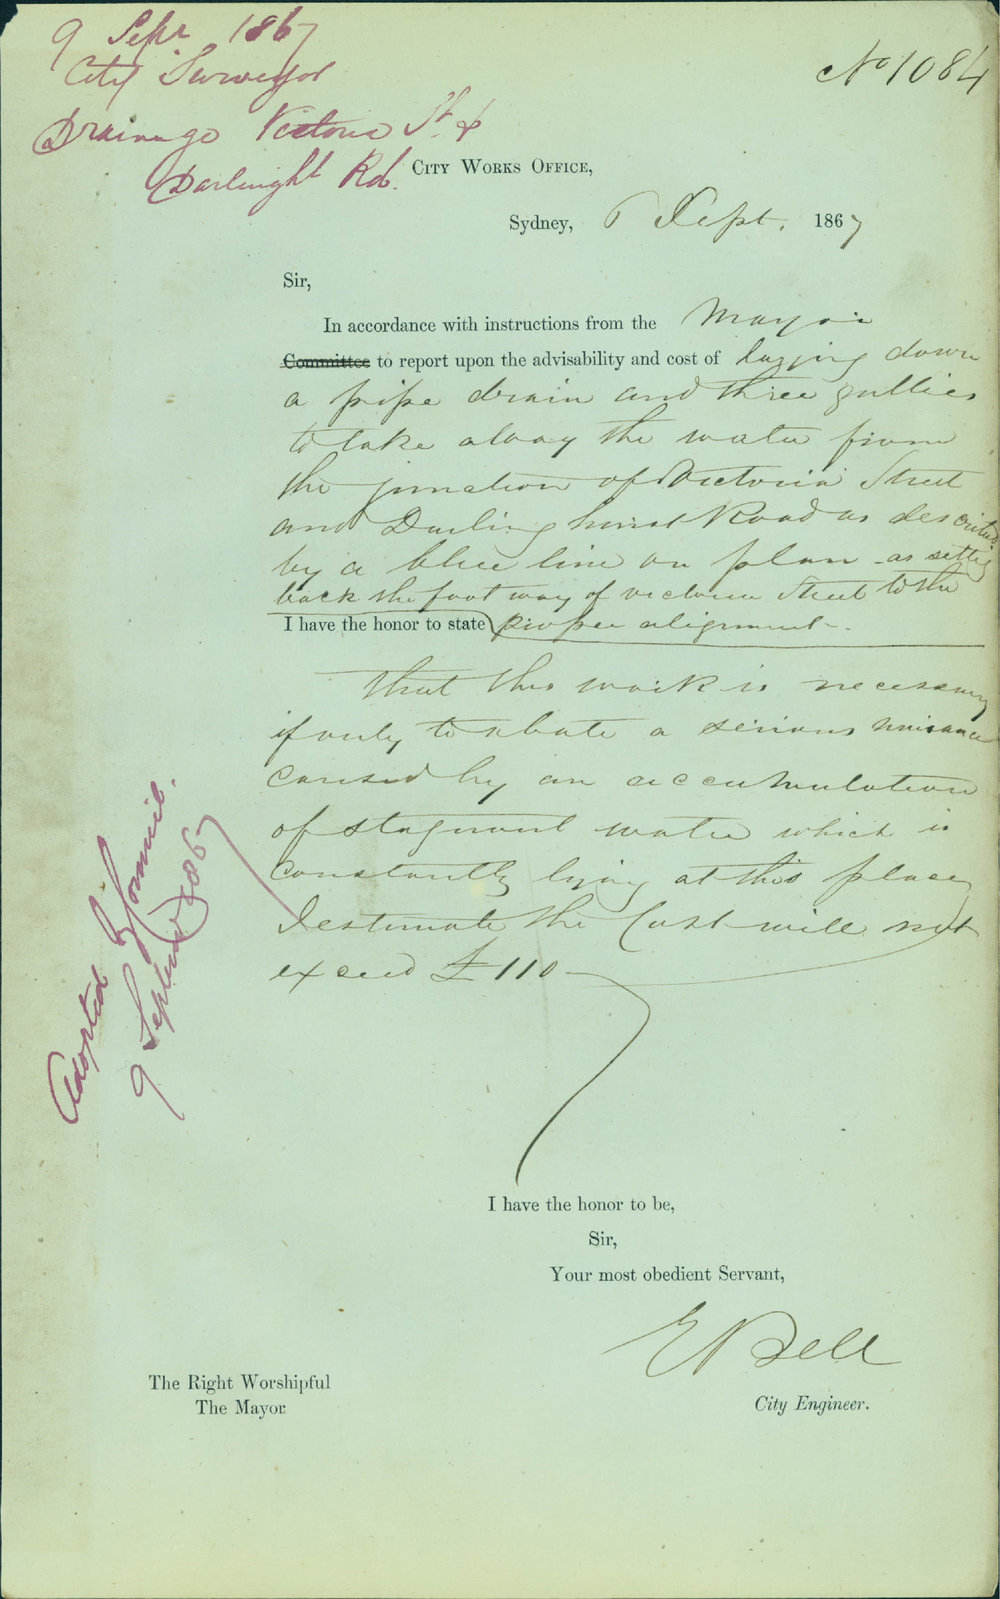 9 Sepr 1867
City Surveyor
Drainage Victoria St &
Darlinght Rd.
No 1084
City Works Office,
Sydney, 6 Sept. 1867
Sir,
In accordance with instructions from the Mayor
Committee to report upon the advisability and cost of laying down
a pipe drain and three gullies
to take away the water from
the junction of Victoria Street
and Darlinghurst Road as described
by a blue line on plan - as setting
back the foot way of Victoria Street to the
I have the honor to state proper alignment.
that this work is necessary
if only to abate a serious nuisance
caused by an accumulation
of stagnant water which is
constantly lying at this place,
I estimate the Cost will not
exceed £110
Adopted by Council.
9 September 1867
I have the honor to be,
Sir,
Your most obedient Servant,
E Bell
City Engineer.
The Right Worshipful
The Mayor